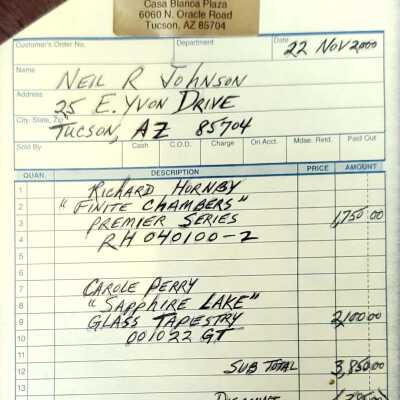 Casa Blanca Plaza
6060 N. Oracle Road
Tucson, AZ 85704
Customer's Order No. Department Date 22 NOV 2000
Name NEIL R JOHNSON
Address 25 E. YVON DRIVE
City, State, Zip TUCSON, AZ 85704
Sold By Cash C.O.D. Charge On Acct. Mdse. Retd. Paid Out
QUAN. DESCRIPTION PRICE AMOUNT
1 RICHARD HORNBY
2 "FINITE CHAMBERS"
3 PREMIER SERIES 1,750 00
4 RH 040100-2
5
6
7 CAROLE PERRY
8 "SAPPHIRE LAKE"
9 GLASS TAPESTRY 2,100.00
10 001022 GT
11
12 SUB TOTAL 3,850.00
13